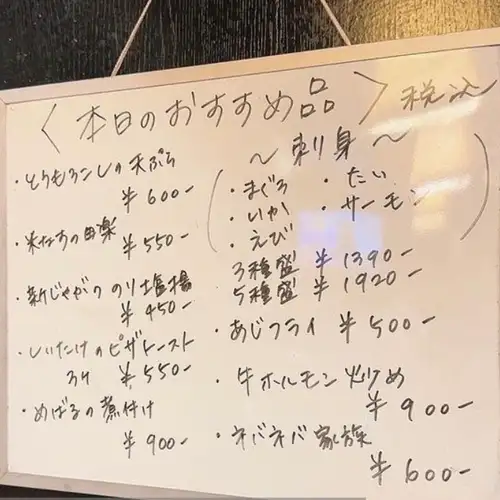 〈本日のおすすめ品〉税込
・とうもろこしの天ぷら
¥600-
・米なすの田楽
¥550-
・新じゃがの のり塩揚
¥450-
・しいたけのピザトースト
3ケ ¥550-
・めばるの煮付け
¥900-
〜刺身〜
・まぐろ ・たい
・いか ・サーモン
・えび
3種盛 ¥1390-
5種盛 ¥1920-
・あじフライ ¥500-
・牛ホルモン炒め
¥900-
・ネバネバ家族
¥600-